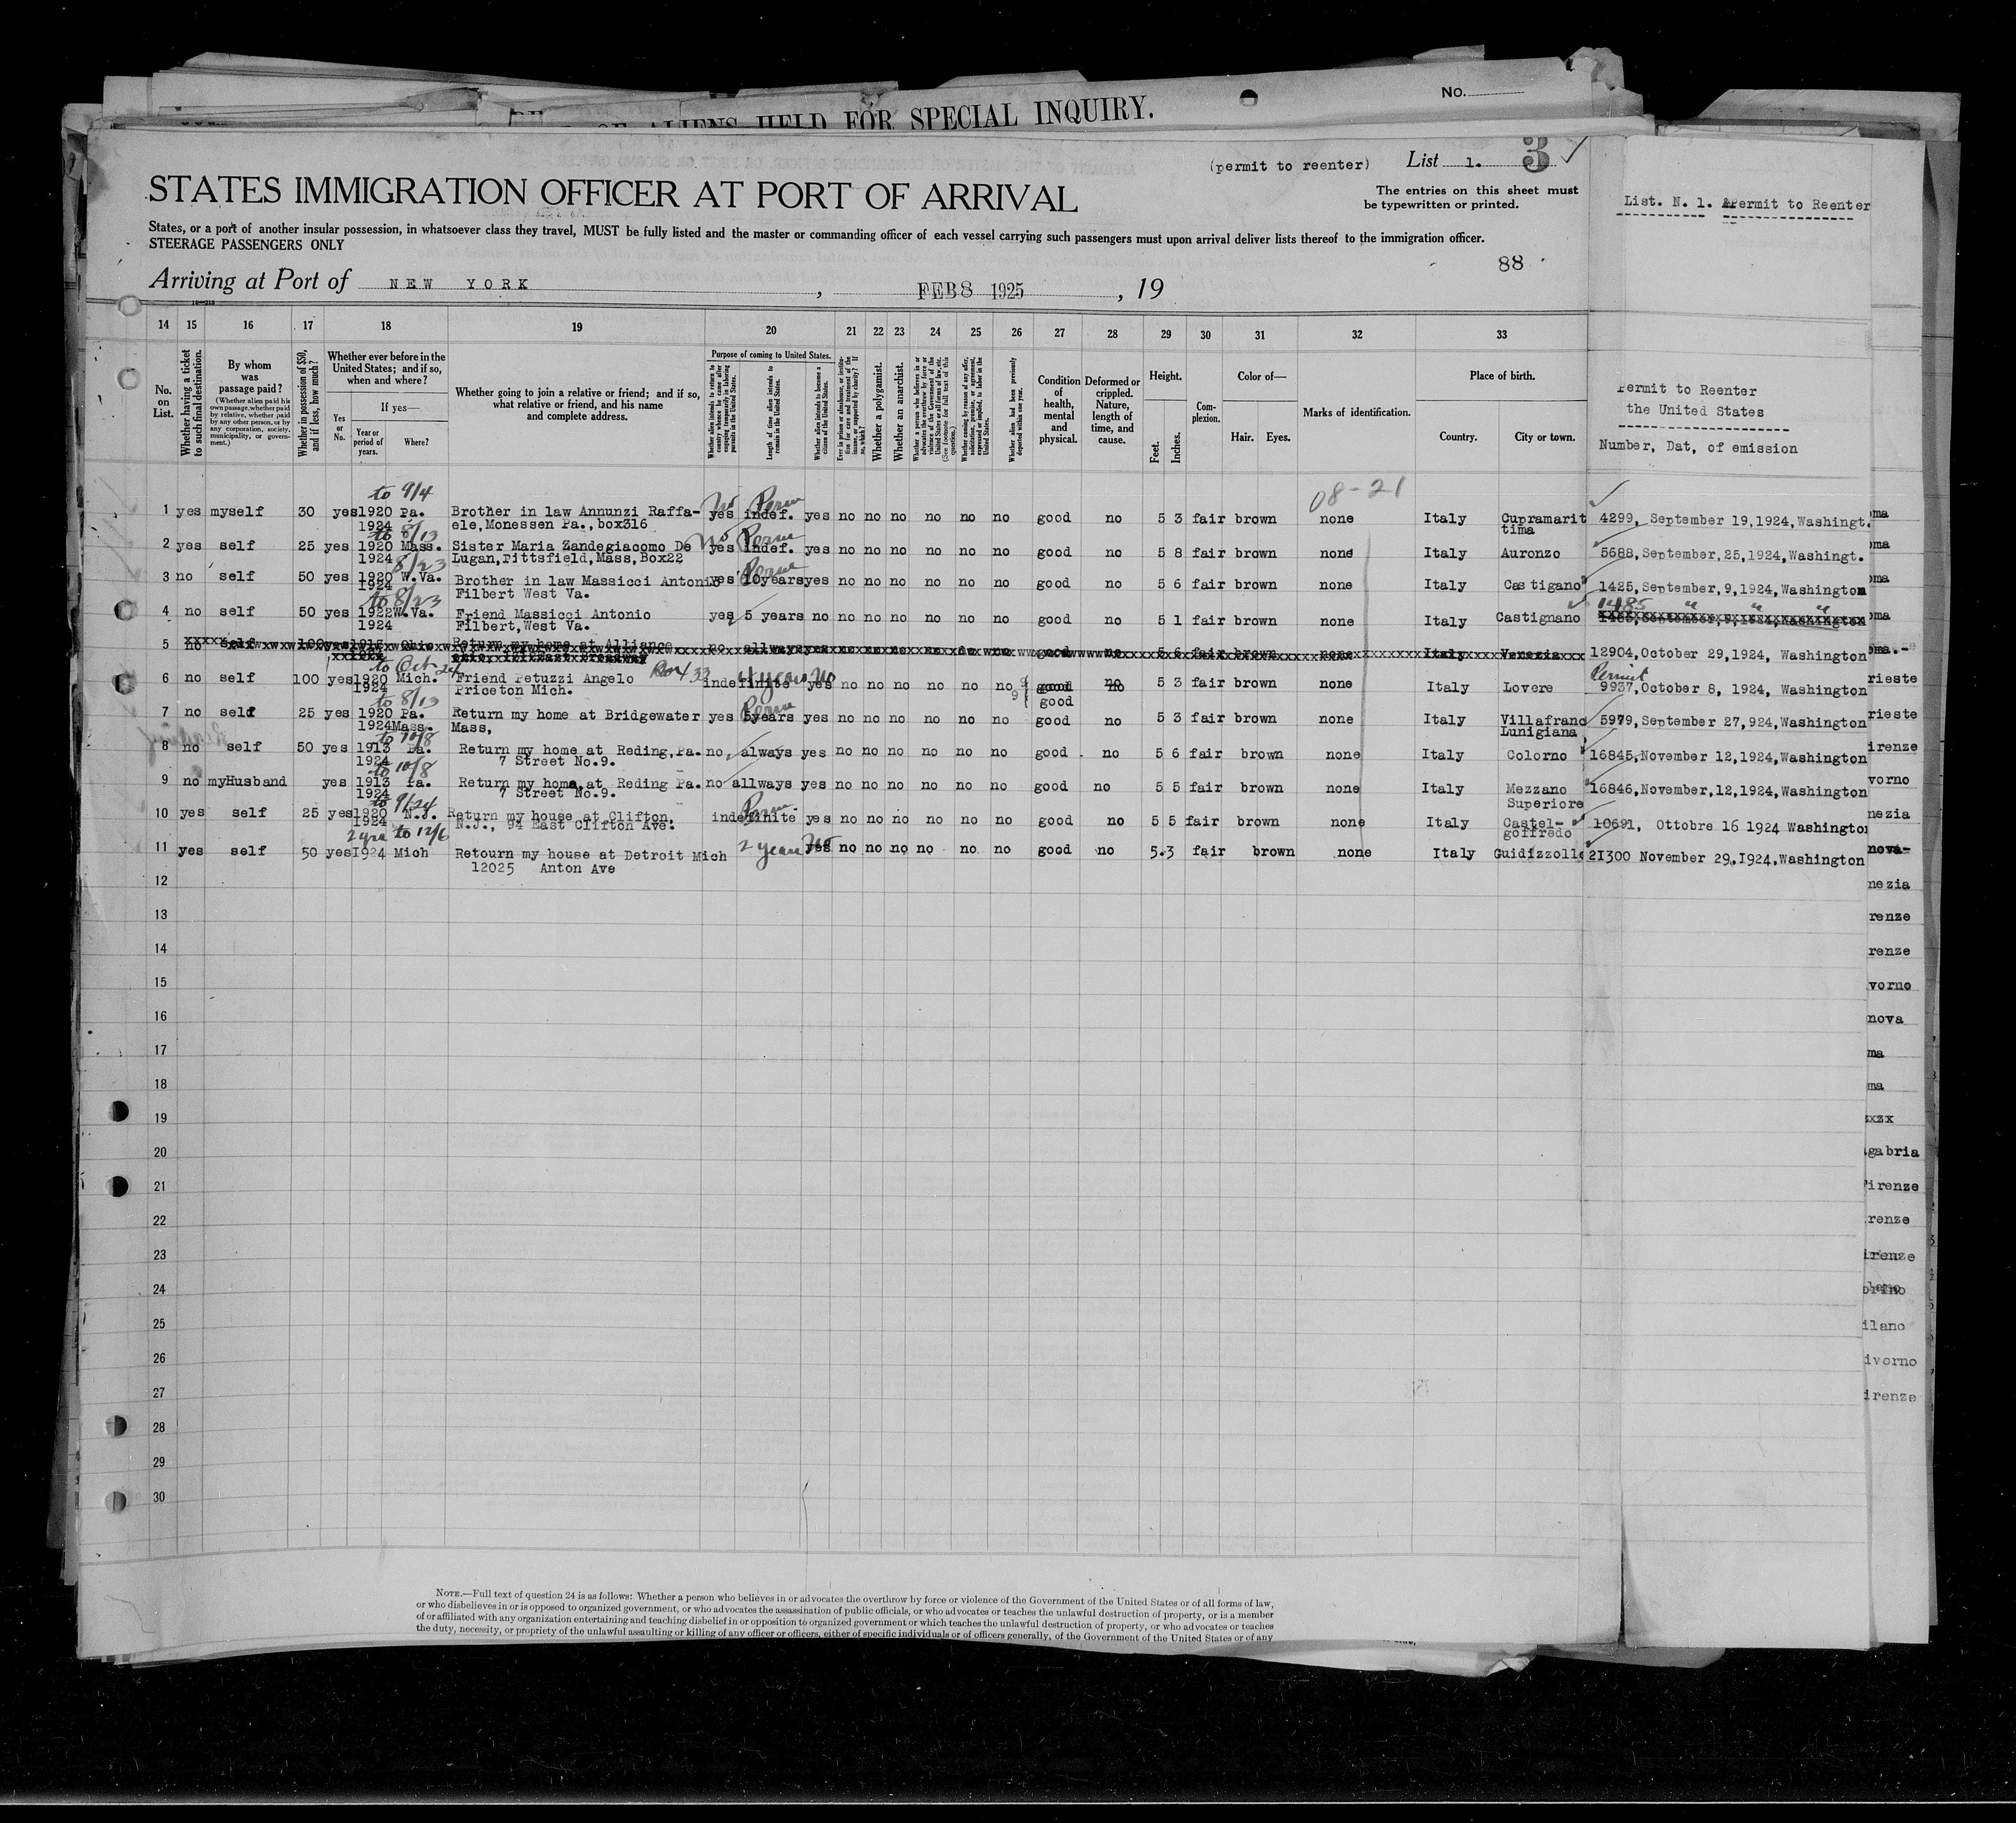 No.
OF ALIENS HELD FOR SPECIAL INQUIRY.
(permit to reenter) List 1. 3
STATES IMMIGRATION OFFICER AT PORT OF ARRIVAL
The entries on this sheet must
be typewritten or printed.
List. N. 1. Permit to Reenter
States, or a port of another insular possession, in whatsoever class they travel, MUST be fully listed and the master or commanding officer of each vessel carrying such passengers must upon arrival deliver lists thereof to the immigration officer.
STEERAGE PASSENGERS ONLY
88
Arriving at Port of NEW YORK, FEB 8 1925, 19
14 15 16 17 18 19 20 21 22 23 24 25 26 27 28 29 30 31 32 33
No. on List.
Whether having a ticket to such final destination.
By whom was passage paid?
(Whether alien paid his own passage, whether paid by relative, whether paid by any other person, or by any corporation, society, municipality, or government.)
Whether in possession of $50, and if less, how much?
Whether ever before in the United States; and if so, when and where?
Yes or No.
If yes—
Year or period of years.
Where?
Whether going to join a relative or friend; and if so, what relative or friend, and his name and complete address.
Purpose of coming to United States.
Whether alien intends to return to country whence he came after engaging temporarily in laboring pursuits in the United States.
Length of time alien intends to remain in the United States.
Whether alien intends to become a citizen of the United States.
Whether a polygamist.
Whether an anarchist.
Whether alien had been previously deported within one year.
Condition of health, mental and physical.
Deformed or crippled. Nature, length of time, and cause.
Height.
Feet. Inches.
Complexion.
Color of—
Hair. Eyes.
Marks of identification.
Place of birth.
Country. City or town.
Permit to Reenter
the United States
Number, Dat, of emission
to 9/4 08-21
1 yes myself 30 yes 1920 Pa. Brother in law Annunzi Raffa- yes indef. yes no no no no no no good no 5 3 fair brown none Italy Cupramarit 4299, September 19,1924, Washingt.
1924 ele, Monessen Pa., box316 tima
to 8/13 No Perm
2 yes self 25 yes 1920 Mass. Sister Maria Zandegiacomo De yes indef. yes no no no no no no good no 5 8 fair brown none Italy Auronzo 5688, September, 25, 1924, Washingt.
1924 Lugan, Pittsfield, Mass, Box22
8/23
3 no self 50 yes 1920 W.Va. Brother in law Massicci Antonio yes 10years yes no no no no no no good no 5 6 fair brown none Italy Castigano 1425, September, 9, 1924, Washington
1924 Filbert West Va.
to 8/23
4 no self 50 yes 1922 W.Va. Friend Massicci Antonio yes 5 years no no no no no no no good no 5 1 fair brown none Italy Castignano 1485 " " "
1924 Filbert, West Va.
5 no self 100 yes 1913 Ohio Return my home at Alliance no allways yes no no no no no no good no 5 6 fair brown none Italy Venezia 12904, October 29, 1924, Washington
to Oct 24
6 no self 100 yes 1920 Mich. Friend Petuzzi Angelo Box 433 indefinite 4 years yes no no no no no no no good no 5 3 fair brown none Italy Lovere Permit 9937, October 8, 1924, Washington
1924 Priceton Mich. good
to 8/13
7 no self 25 yes 1920 Pa. Return my home at Bridgewater yes 5years yes no no no no no no good no 5 3 fair brown none Italy Villafranc 5979, September 27, 924, Washington
1924 Mass. Mass, Lunigiana
to 10/8
8 no self 50 yes 1913 Pa. Return my home at Reding, Pa. no always yes no no no no no no good no 5 6 fair brown none Italy Colorno 16845, November 12, 1924, Washington
1924 7 Street No.9.
to 10/8
9 no myHusband yes 1913 Pa. Return my home at Reding Pa. no allways yes no no no no no no good no 5 5 fair brown none Italy Mezzano 16846, November, 12, 1924, Washington
1924 7 Street No.9. Superiore
to 9/24 Perm
10 yes self 25 yes 1920 N.J. Return my house at Clifton, indefinite yes no no no no no no good no 5 5 fair brown none Italy Castel- 10691, Ottobre 16 1924 Washington
1924 N.J., 94 East Clifton Ave. goffredo
2 yrs to 12/6
11 yes self 50 yes 1924 Mich Retourn my house at Detroit Mich 2 years yes no no no no no no good no 5.3 fair brown none Italy Guidizzollo 21300 November 29, 1924, Washington
12025 Anton Ave
12
13
14
15
16
17
18
19
20
21
22
23
24
25
26
27
28
29
30
NOTE.—Full text of question 24 is as follows: Whether a person who believes in or advocates the overthrow by force or violence of the Government of the United States or of all forms of law,
or who disbelieves in or is opposed to organized government, or who advocates the assassination of public officials, or who advocates or teaches the unlawful destruction of property, or is a member
of or affiliated with any organization entertaining and teaching disbelief in or opposition to organized government or which teaches the unlawful destruction of property, or who advocates or teaches
the duty, necessity, or propriety of the unlawful assaulting or killing of any officer or officers, either of specific individuals or of officers generally, of the Government of the United States or of any